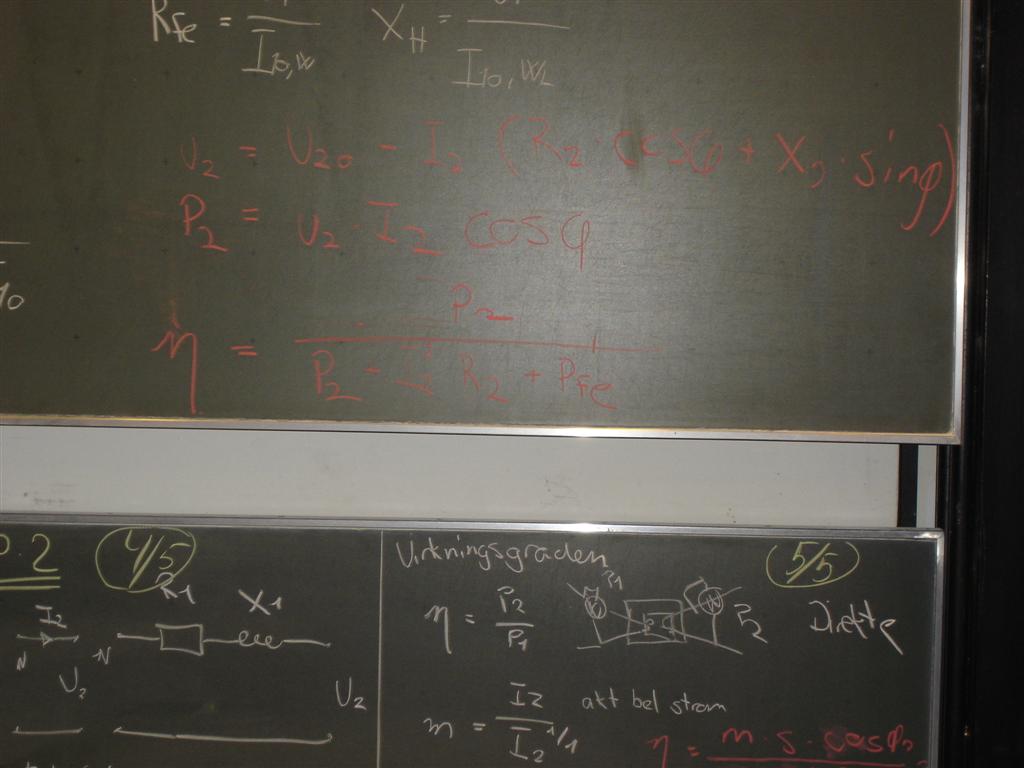 Rfe = / I10,w XH = / I10,WL
U2 = U20 - I2 (R2 · cosφ + X2 · sinφ)
P2 = U2 · I2 cosφ
η = P2 / P2 + I2 R2 + Pfe
10
.2 4/5
I2 R1 X1
N N
U2 U2
Virkningsgraden 5/5
η = P2 / P1 P1 W W P2 Direkte
m = I2 / I2 1/1 akt bel strøm
η = m · s · cosφ2